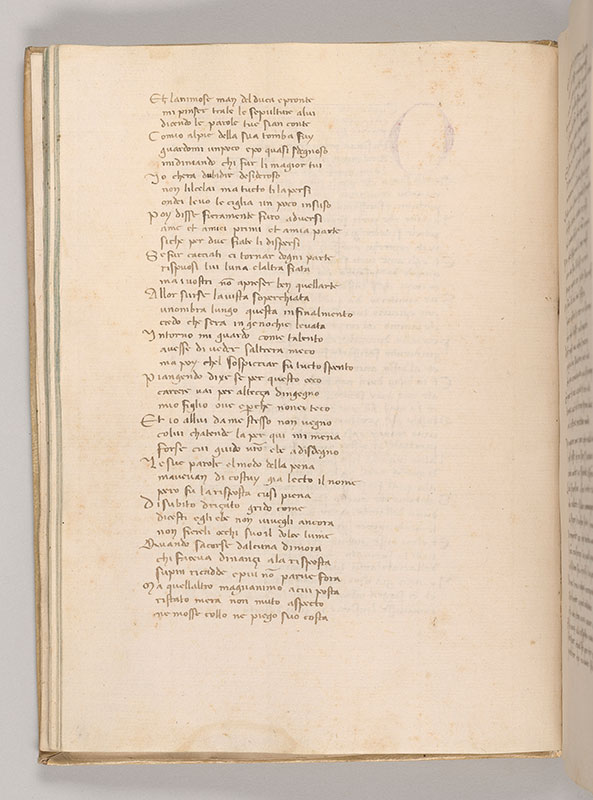 Et lanimose man del duca e pronte
mi pinser tra le le sepulture alui
dicendo le parole tue sian conte
Comio alpie della sua tomba fuy
guardomi unpoco epo quasi sdegnoso
midimando chi fur li magior tui
Io chera dubidir desideroso
non lilcelai ma tucto lilapersi
ondei levo le ciglia un poco insuso
Poy disse fieramente furo adversi
ame et amiei primi et amia parte
siche per due fiate li dispersi
Se fur cacciati ei tornar dogni parte
rispuosi lui luna elaltra fiata
ma i vostri nō apreser ben quellarte
Allor surse lavista scoperchiata
unombra lungo questa infinalmento
credo che sera in genochie levata
Intorno mi guardo come talento
avesse di veder saltrera meco
ma poy chel sospicciar fu tucto spento
Piangendo dixe se per questo ceco
carcere vai per altezza dingegno
mio figlio ove e perche none teco
Et io allui da me stesso non vegno
colui chatende la per qui mi mena
forse cui guido vrō ebe adisdegno
Le sue parole elmodo della pena
mavevan di costuy gia lecto il nome
pero fu la risposta cusi piena
Di subito drizato grido come
dicesti egli ebe non vivegli ancora
non fiereli occhi suo il dolce lume
Quando sacorse dalcuna dimora
chi faceva dinanzi ala risposta
supin ricadde epiu nō parve fora
Ma quellaltro magnanimo acui posta
ristato mera non muto aspecto
ne mosse collo ne piego sua costa